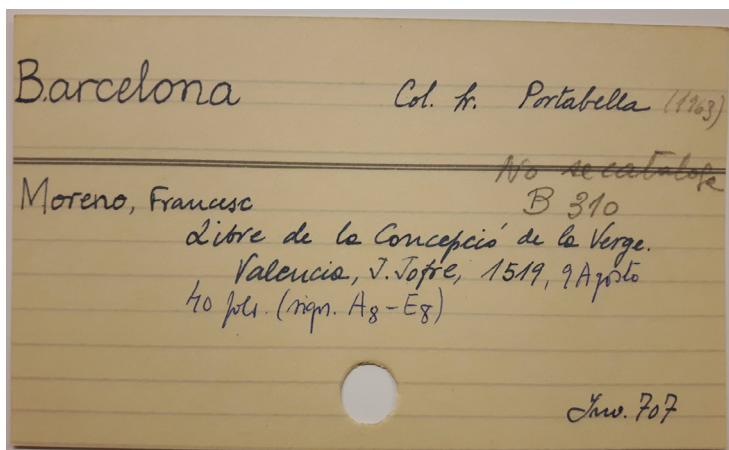 Barcelona Col. fr. Portabella (1963)
No se cataloga
Moreno, Francesc B 310
Libre de la Concepció de la Verge.
Valencia, J. Jofre, 1519, 9 Agosto
40 fols. (sign. A8-E8)
Inv. 707